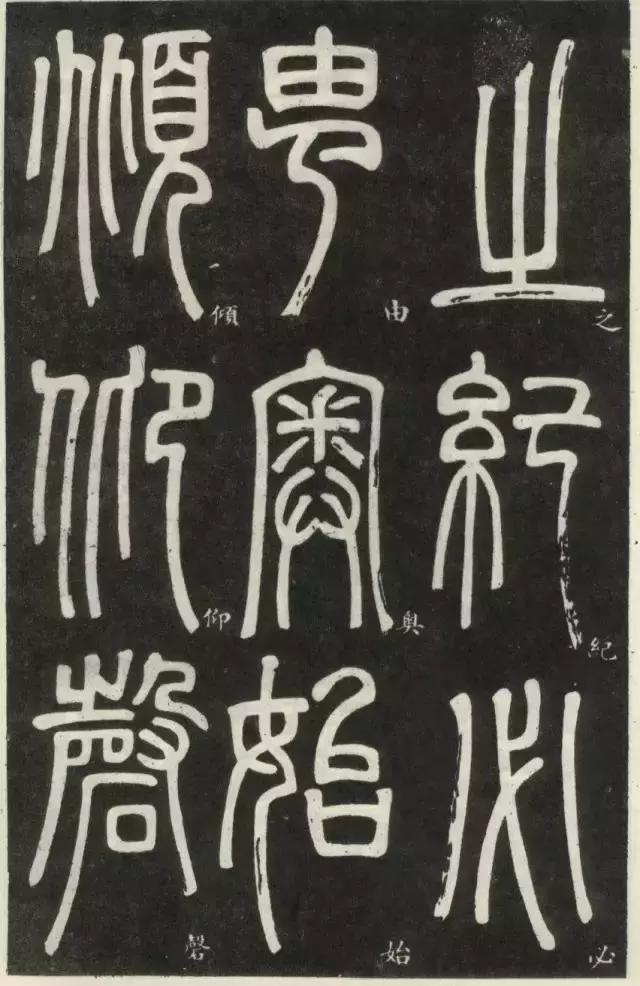 之紀必
由奧始
傾仰磬